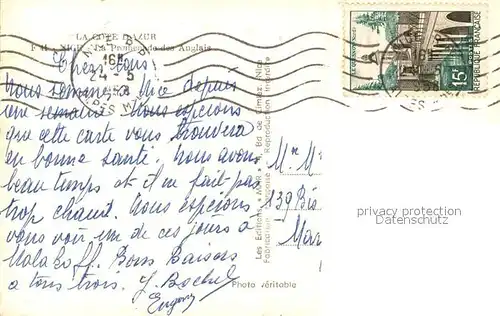 LA COTE D'AZUR
F 11 - NICE - La Promenade des Anglais
Chers tous
Nous sommes à Nice depuis
une semaine nous espérons
que cette carte vous trouvera
en bonne santé. Nous avons
beau temps et il ne fait pas
trop chaud. Nous espérons
vous voir un de ces jours à
Malakoff. Bons Baisers
à tous trois.
Eugène
Photo véritable
Les Editions « MAR » Bd de Cimiez, Nice
Reproduction Interdite
15F
POSTES
REPUBLIQUE FRANÇAISE
139 Bis
privacy protection
Datenschutz